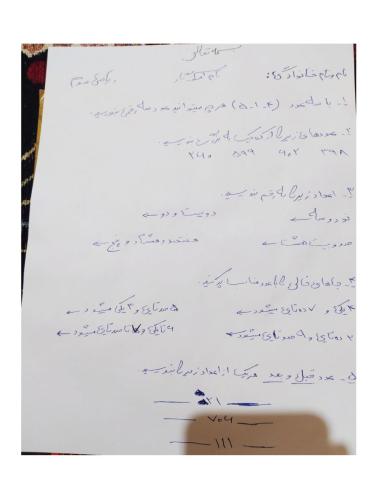 بسمه تعالی
نام و نام خانوادگی: نام آموزگار: پایه‌ی سوم
۱. با سه عدد (۴-۱-۵) هر چه میتوانید عدد سه رقمی بنویسید.
۲. عددهای زیر را از کوچک به بزرگ بنویسید.
۳۹۸ ۶۰۲ ۵۹۹ ۲۶۰
۳. اعداد زیر را به رقم بنویسید.
نود و سه دویست و دو
صد و بیست هشت هفتصد و هشتاد و پنج
۴. جاهای خالی را با عدد مناسب پر کنید.
۴ یکی و ۷ ده تایی میشود ۵ صد تایی و ۲ یکی میشود
۳ ده تایی و ۹ صد تایی میشود ۶ تایکی و ۷ تا صد تایی میشود
۵. عدد قبل و بعد هر یک از اعداد زیر را بنویسید
۲۱
۷۰۶
۱۱۱